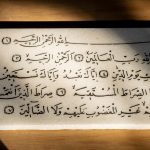 بسم الله الرحمن الرحيم
لله رب العالمين الرحمن الرحيم
يوم الدين إياك نعبد وإياك نستعين
الصراط المستقيم صراط الذين
غير المغضوب عليهم ولا الضالين